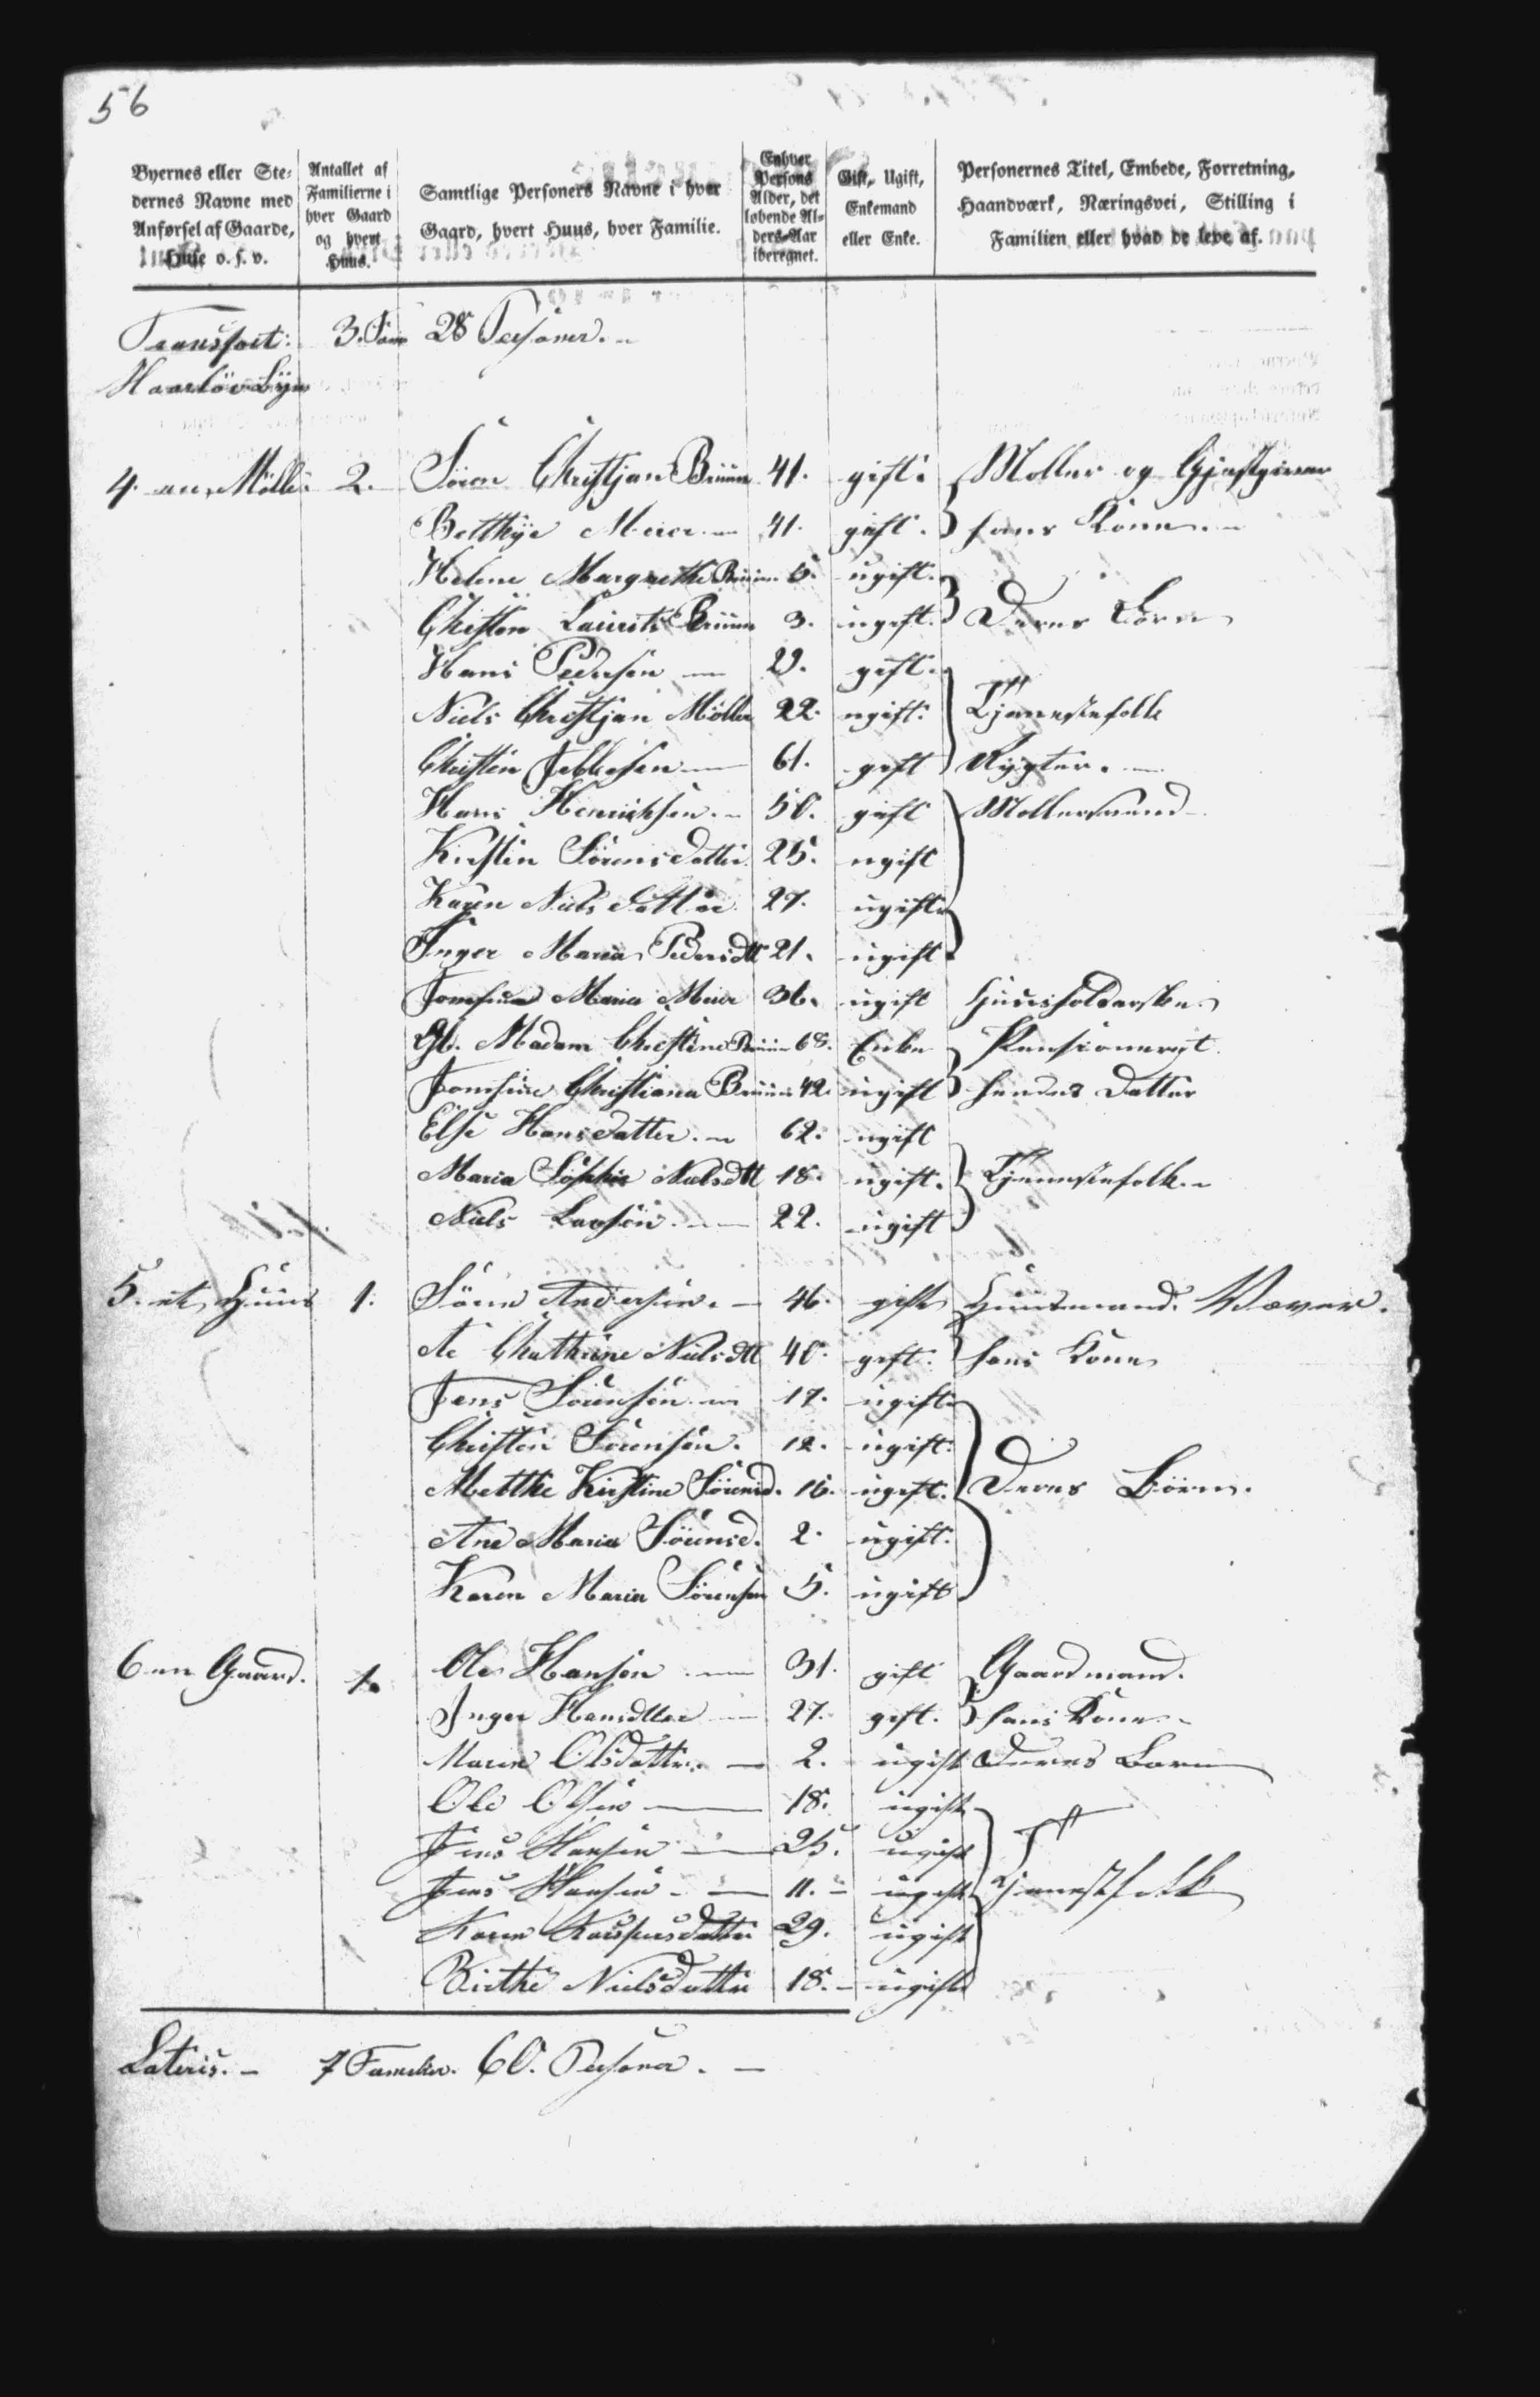 56
Byernes eller Ste-
dernes Navne med
Anførsel af Gaarde,
Huse o. s. v.
Antallet af
Familierne i
hver Gaard
og hvert
Huus.
Samtlige Personers Navne i hver
Gaard, hvert Huus, hver Familie.
Enhver
Persons
Alder, det
løbende Al-
ders-Aar
iberegnet.
Gift, Ugift,
Enkemand
eller Enke.
Personernes Titel, Embede, Forretning,
Haandværk, Næringsvei, Stilling i
Familien eller hvad de leve af.
Transport: 3. Fam 28 Personer.
Haarlöv Bye
4. en Mölle 2. Sören Christjan Bruun 41. gift. Moller og Gjestgiver
Betthye Meier 41. gift. hans Kone
Helene Margrethe Bruun 5. ugift.
Christen Laurits Bruun 3. ugift. Deres Börn
Hans Pedersen 29. gift.
Niels Christjan Möller 22. ugift. Tjenestefolk
Christen Jebbesen 61. gift Rygter.
Hans Henrichsen 50. gift Mollersvend
Kirsten Sörensdatter 25. ugift
Karen Nielsdatter 27. ugift
Inger Maria Pedersdtt 21. ugift
Maria Meier 36. ugift Huusholderske
Gl. Madam Christine Bruun 68. Enke
Christiana Bruun 42. ugift hendes Datter
Else Hansdatter 62. ugift
Maria Sophie Nielsdtt 18. ugift. Tjenestefolk
Niels Larsen 22. ugift
5. et Huus 1. Sören Andersen 46. gift Huusmand. Væver.
Ae Chathrine Nielsdtt 40. gift. hans Kone
Jens Sörensen 17. ugift
Christen Sörensen. 12. ugift.
Metthe Kirstine Sörensd. 16. ugift. Deres Börn.
Ane Maria Sörensd. 2. ugift.
Karen Maria Sörensen 5. ugift
6 en Gaard. 1. Ole Hansen 31. gift Gaardmand.
Inger Hansdtter 27. gift. hans Kone
Maren Olsdatter 2. ugift Deres Barn
Ole Olsen 18. ugift
Jens Hansen 25. ugift
Jens Hansen 11. ugift Tjenestfolk
Karen Kaspersdatter 29. ugift
Birthe Nielsdatter 18. ugift
Lateris. 7 Familier. 60. Personer.